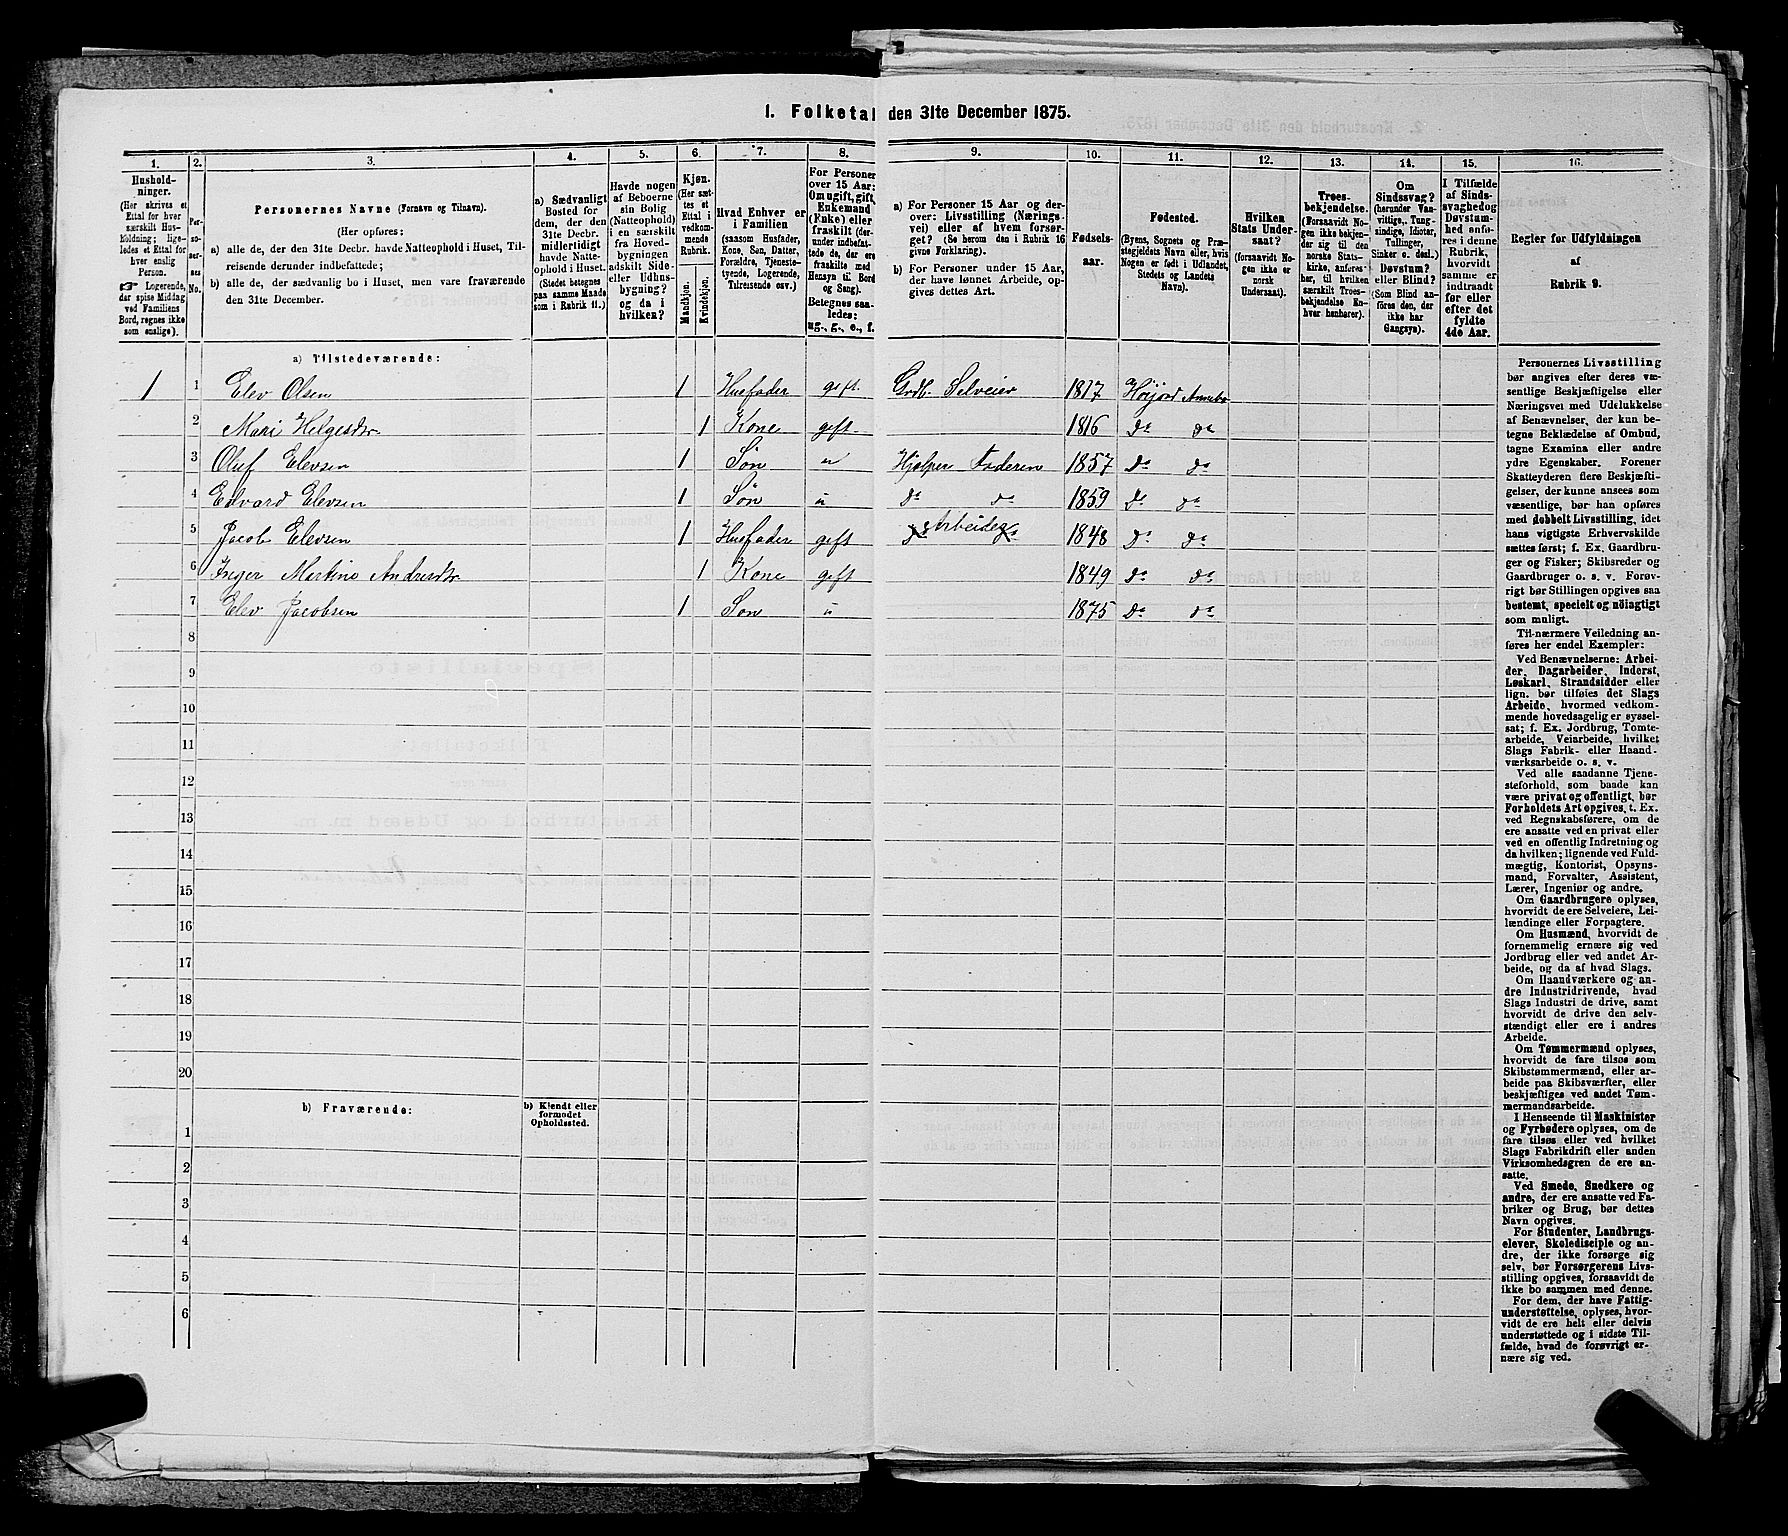 1. Folketal den 31te December 1875.
1.
2.
3.
4.
5.
6.
7.
8.
9.
10.
11.
12.
13.
14.
15.
16.
Hushold-
ninger.
(Her skrives et
Ettal for hver
særskilt Hus-
holdning; lige-
ledes et Ettal for
hver enslig
Person.
☛ Logerende,
der spise Middag
ved Familiens
Bord, regnes ikke
som enslige).
Per-
so-
ner-
nes
No.
Personernes Navne (Fornavn og Tilnavn).
(Her opføres:
a) alle de, der den 31te Decbr. havde Natteophold i Huset, Til-
reisende derunder indbefattede;
b) alle de, der sædvanlig bo i Huset, men vare fraværende
den 31te December.
a) Sædvanligt
Bosted for
dem, der den
31te Decbr.
midlertidigt
havde Natte-
ophold i Huset.
(Stedet betegnes
paa samme Maade
som i Rubrik 11.)
Havde nogen
af Beboerne
sin Bolig
(Natteophold)
i en særskilt
fra Hoved-
bygningen
adskilt Side-
eller Udhus-
bygning?
og da i
hvilken?
Kjøn.
(Her sæt-
tes et
Ettal i
vedkom-
mende
Rubrik.
Mandkjøn.
Kvindekjøn.
Hvad Enhver er
i Familien
(saasom Husfader,
Kone, Søn, Datter,
Forældre, Tjeneste-
tyende, Logerende,
Tilreisende osv.)
For Personer
over 15 Aar:
Om ugift, gift,
Enkemand
(Enke) eller
fraskilt (der-
under indbefat-
tede de, der ere
fraskilte med
Hensyn til Bord
og Seng).
Betegnes saa-
ledes:
ug., g., e., f.
a) For Personer 15 Aar og der-
over: Livsstilling (Nærings-
vei) eller af hvem forsør-
get? (Se herom den i Rubrik 16
givne Forklaring).
b) For Personer under 15 Aar,
der have lønnet Arbeide, op-
gives dettes Art.
Fødsels-
aar.
Fødested.
(Byens, Sognets og Præ-
stegjeldets Navn eller, hvis
Nogen er født i Udlandet,
Stedets og Landets
Navn).
Hvilken
Stats Under-
saat?
(forsaavidt No-
gen ikke er
norsk
Undersaat).
Troes-
bekjendelse.
(Forsaavidt No-
gen ikke bekjen-
der sig til den
norske Stats-
kirke, anføres
her, til hvilken
særskilt Troes-
bekjendelse En-
hver henhører).
Om
Sindssvag?
(herunder Van-
vittige, Tung-
sindige, Idioter,
Tullinger,
Sinker o. desl.)
Døvstum?
eller Blind?
(Som Blind an-
føres den, der
ikke har
Gangsyn).
I Tilfælde
af Sinds-
svaghed og
Døvstum-
hed anfø-
res i denne
Rubrik,
hvorvidt
samme er
indtraadt
før eller
efter det
fyldte
4de Aar.
Regler for Udfyldningen
af
Rubrik 9.
a) Tilstedeværende:
1 1 Elev Olsen 1 Husfader gift. Grdb. Selveier 1817 Høijord
2 Mari Helgesdtr 1 Kone gift 1816 do do
3 Oluf Elevsen 1 Søn u Hjelper Faderen 1857 do do
4 Edvard Elevsen 1 Søn u do do 1859 do do
5 Jacob Elevsen 1 Husfader gift Arbeider 1848 do do
6 Inger Martine Andersdtr 1 Kone gift 1849 do do
7 Elev Jacobsen 1 Søn u 1875 do do
8
9
10
11
12
13
14
15
16
17
18
19
20
b) Fraværende:
b) Kjendt eller
formodet
Opholdssted.
1
2
3
4
5
6
Personernes Livsstilling
bør angives efter deres væ-
sentlige Beskjæftigelse eller
Næringsvei med Udelukkelse
af Benævnelser, der kun be-
tegne Beklædelse af Ombud,
tagne Examina eller andre
ydre Egenskaber. Forener
Skatteyderen flere Beskjæfti-
gelser, der kunne ansees som
væsentlige, bør han opføres
med dobbelt Livsstilling, idet
hans vigtigste Erhvervskilde
sættes først; f. Ex. Gaardbru-
ger og Fisker; Skibsreder og
Gaardbruger o. s. v. Forøv-
rigt bør Stillingen opgives saa
bestemt, specielt og nøiagtigt
som muligt.
Til nærmere Veiledning an-
føres her endel Exempler:
Ved Benævnelserne: Arbei-
der, Dagarbeider, Inderst,
Løskarl, Strandsidder eller
lign. bør tilføies det Slags
Arbeide, hvormed vedkom-
mende hovedsagelig er syssel-
sat; f. Ex. Jordbrug, Tomte-
arbeide, Veiarbeide, hvilket
Slags Fabrik- eller Haand-
værksarbeide o. s. v.
Ved alle saadanne Tjene-
steforhold, som baade kan
være privat og offentligt, bør
Forholdets Art opgives, t. Ex.
ved Regnskabsførere, om de
ere ansatte ved en privat eller
ved en offentlig Indretning og
da hvilken; lignende ved Fuld-
mægtig, Kontorist, Opsyns-
mand, Forvalter, Assistent,
Lærer, Ingeniør og andre.
Om Gaardbrugere oplyses,
hvorvidt de ere Selveiere, Lei-
lændinge eller Forpagtere.
Om Husmænd, hvorvidt de
fornemmelig ernære sig ved
Jordbrug eller ved andet Ar-
beide, og da af hvad Slags.
Om Haandværkere og an-
dre Industridrivende, hvad
Slags Industri de drive, samt
hvorvidt de drive den selv-
stændigt eller ere i andres
Arbeide.
Om Tømmermænd oplyses,
hvorvidt de fare tilsøs som
Skibstømmermænd, eller ar-
beide paa Skibsværfter, eller
beskjæftiges ved andet Tøm-
mermandsarbeide.
I Henseende til Maskinister
og Fyrbødere oplyses, om de
fare tilsøs eller ved hvilket
Slags Fabrikdrift eller anden
Virksomhedsgren de ere an-
satte.
Ved Smede, Snedkere og
andre, der ere ansatte ved Fa-
briker og Brug, bør dettes
Navn opgives.
For Studenter, Landbrugs-
elever, Skoledisciple og an-
dre, der ikke forsørge sig
selv, bør Forsørgerens Livs-
stilling opgives, forsaavidt de
ikke bo sammen med denne.
For dem, der have Fattig-
understøttelse, oplyses, hvor-
vidt de ere helt eller delvis
understøttede og i sidste Til-
fælde, hvad de forøvrigt er-
nære sig ved.